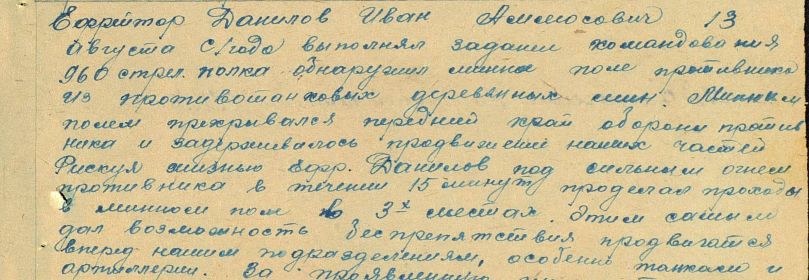 Ефрейтор Данилов Иван Амплосович 13
августа с/года выполняя задание командования
960 стрел. полка обнаружил минное поле противника
из противотанковых деревянных мин. Минным
полем прикрывался передний край обороны против
ника и задерживалось продвижение наших частей
Рискуя жизнью ефр. Данилов под сильным огнем
противника в течении 15 минут проделал проходы
в минном поле в 3х местах. Этим самым
дал возможность беспрепятствия продвигатся
вперед нашим подразделениям, особенно танкам и
артиллерии. За проявленную